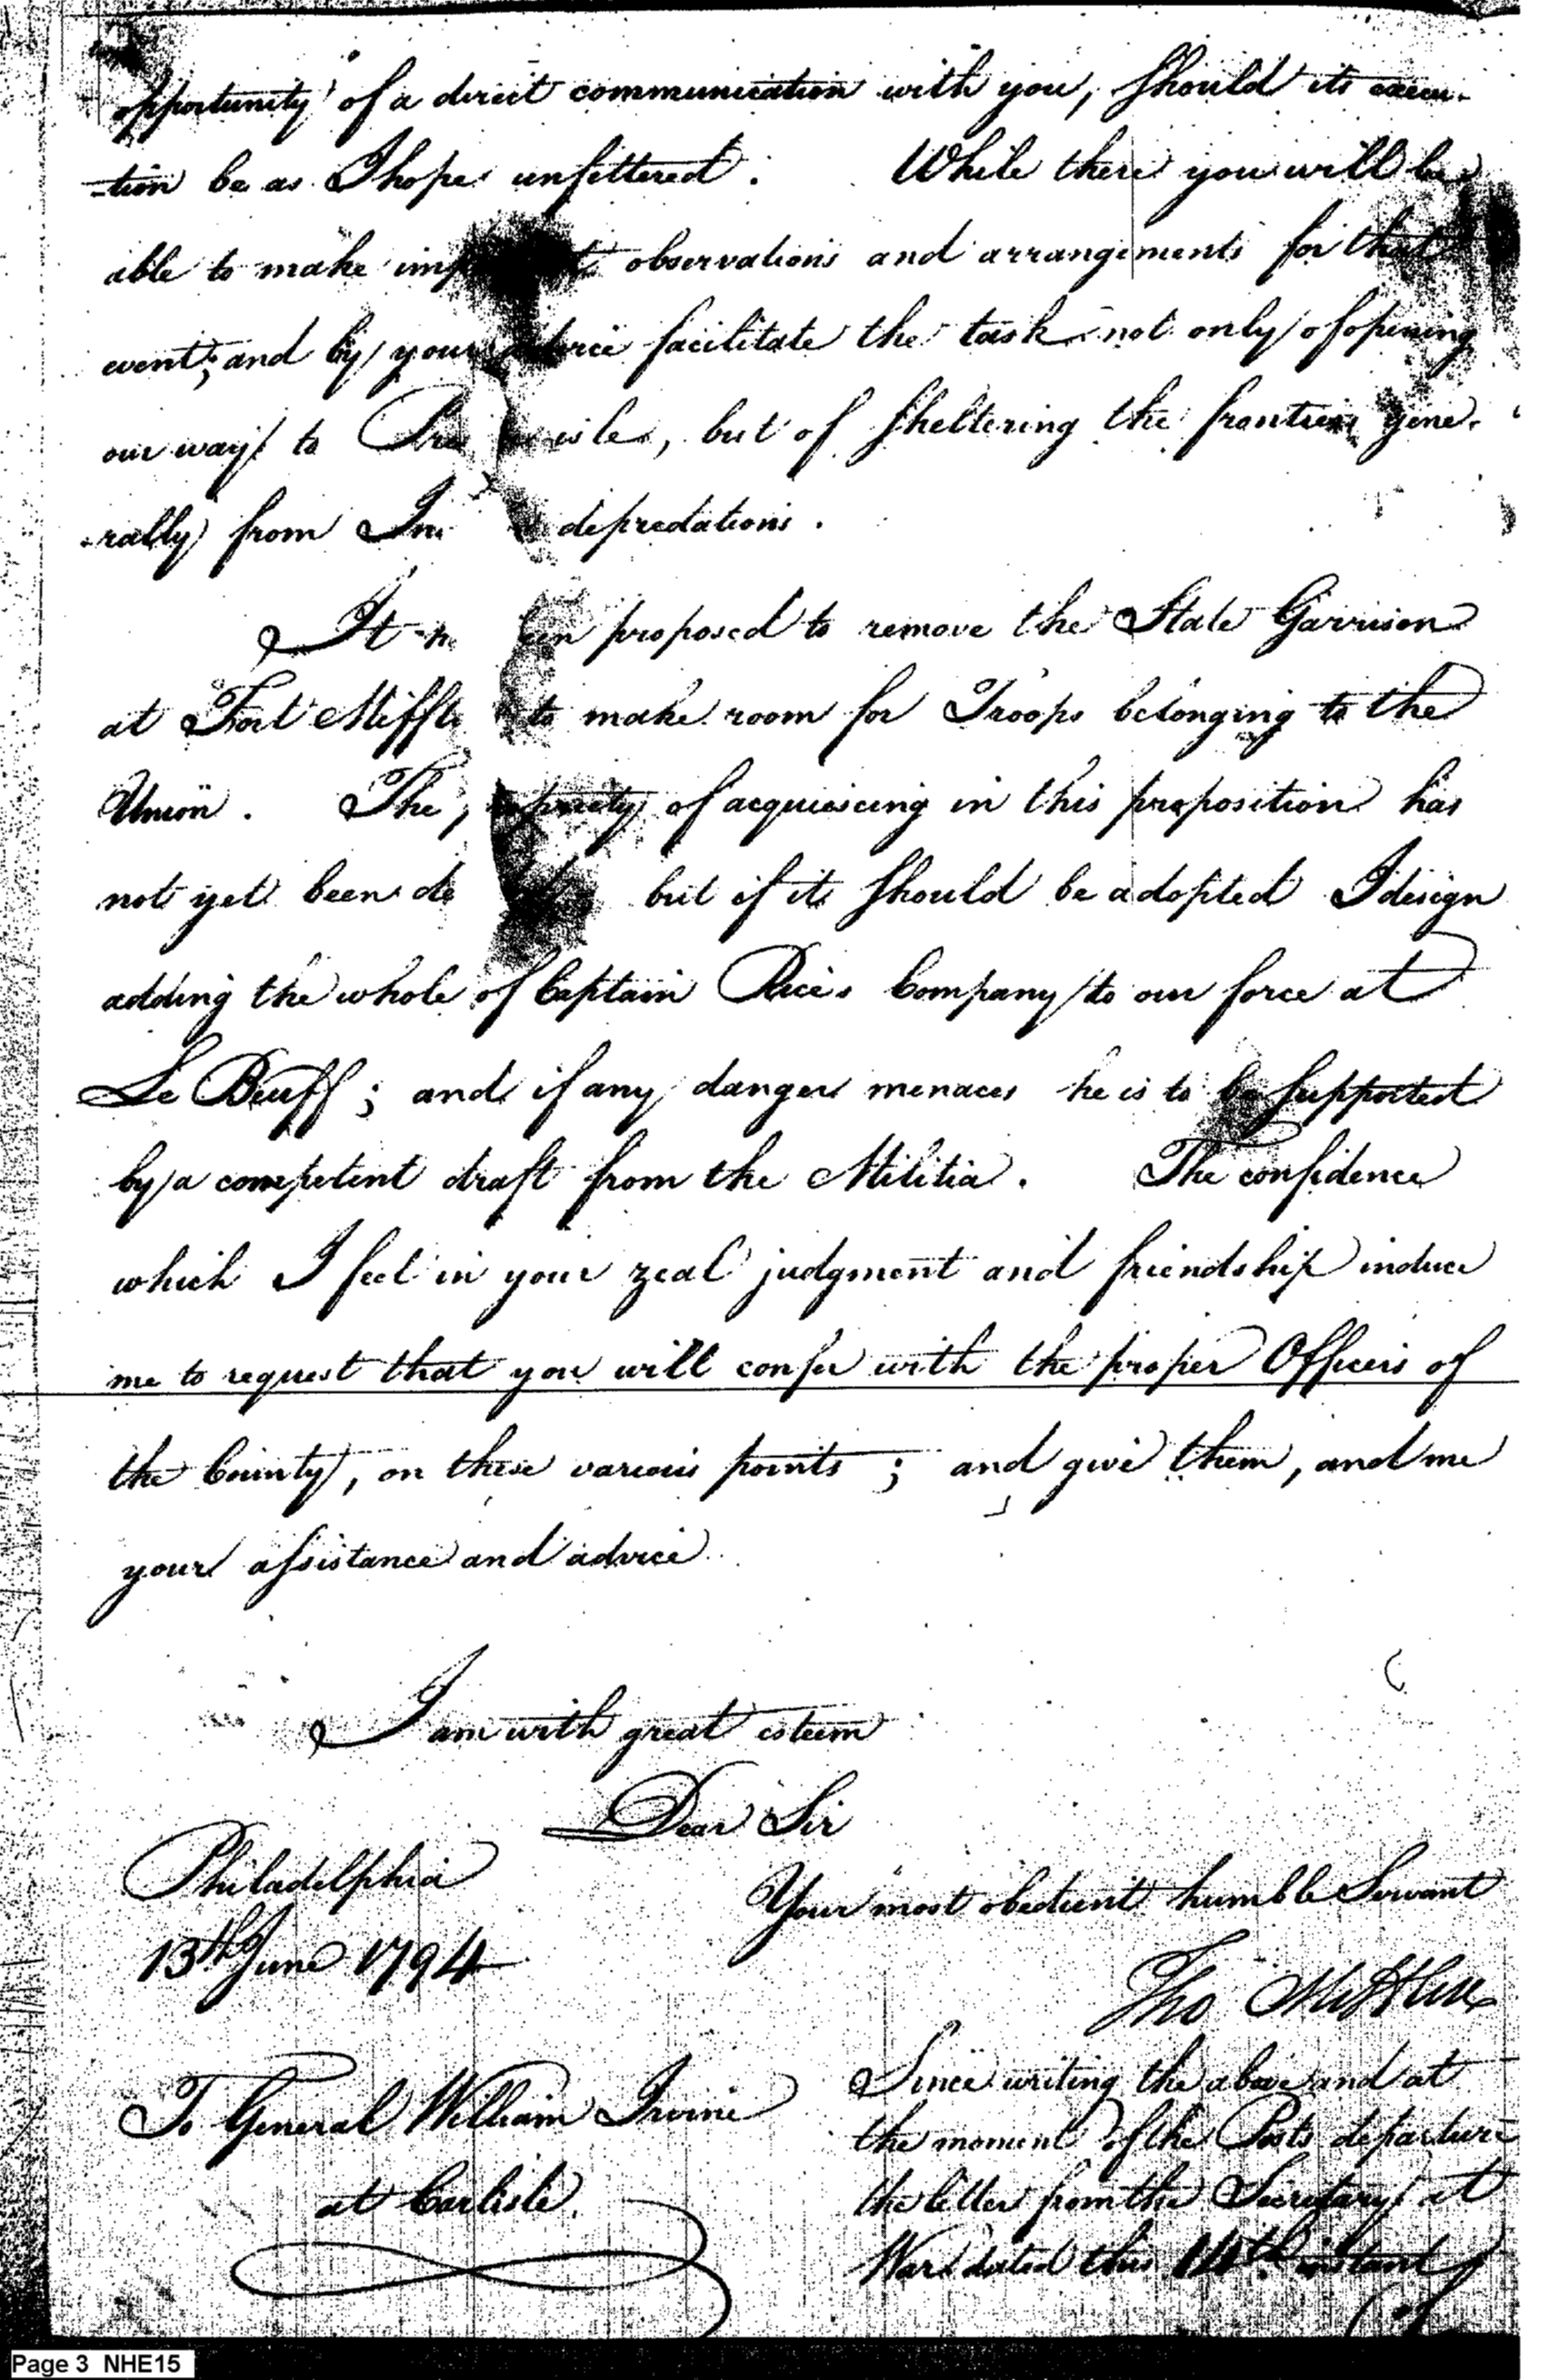 opportunity of a direct communication with you, should its execu-
-tion be as I hope unfettered. While there you will be
able to make observations and arrangements for that
event; and by your facilitate the task not only of opening
our way to isle, but of sheltering the frontier gene-
-rally from depredations.
It been proposed to remove the State Garrison
at Fort Miffl to make room for Troops belonging to the
Union. The of acquiescing in this proposition has
not yet been de but if it should be adopted I design
adding the whole of Captain Rice's Company to our force at
Le Beuff; and if any danger menaces he is to be supported
by a competent draft from the Militia. The confidence
which I feel in your zeal judgment and friendship induce
me to request that you will confer with the proper Officers of
the County, on these various points; and give them, and me
your assistance and advice.
I am with great esteem
Dear Sir
Your most obedient humble Servant
Tho Mifflin
Philadelphia
13th June 1794
To General William Irvine
at Carlisle.
Since writing the above and at
the moment of the Posts departure
the letter from the Secretary at
War dated this 14th instant
Page 3 NHE15